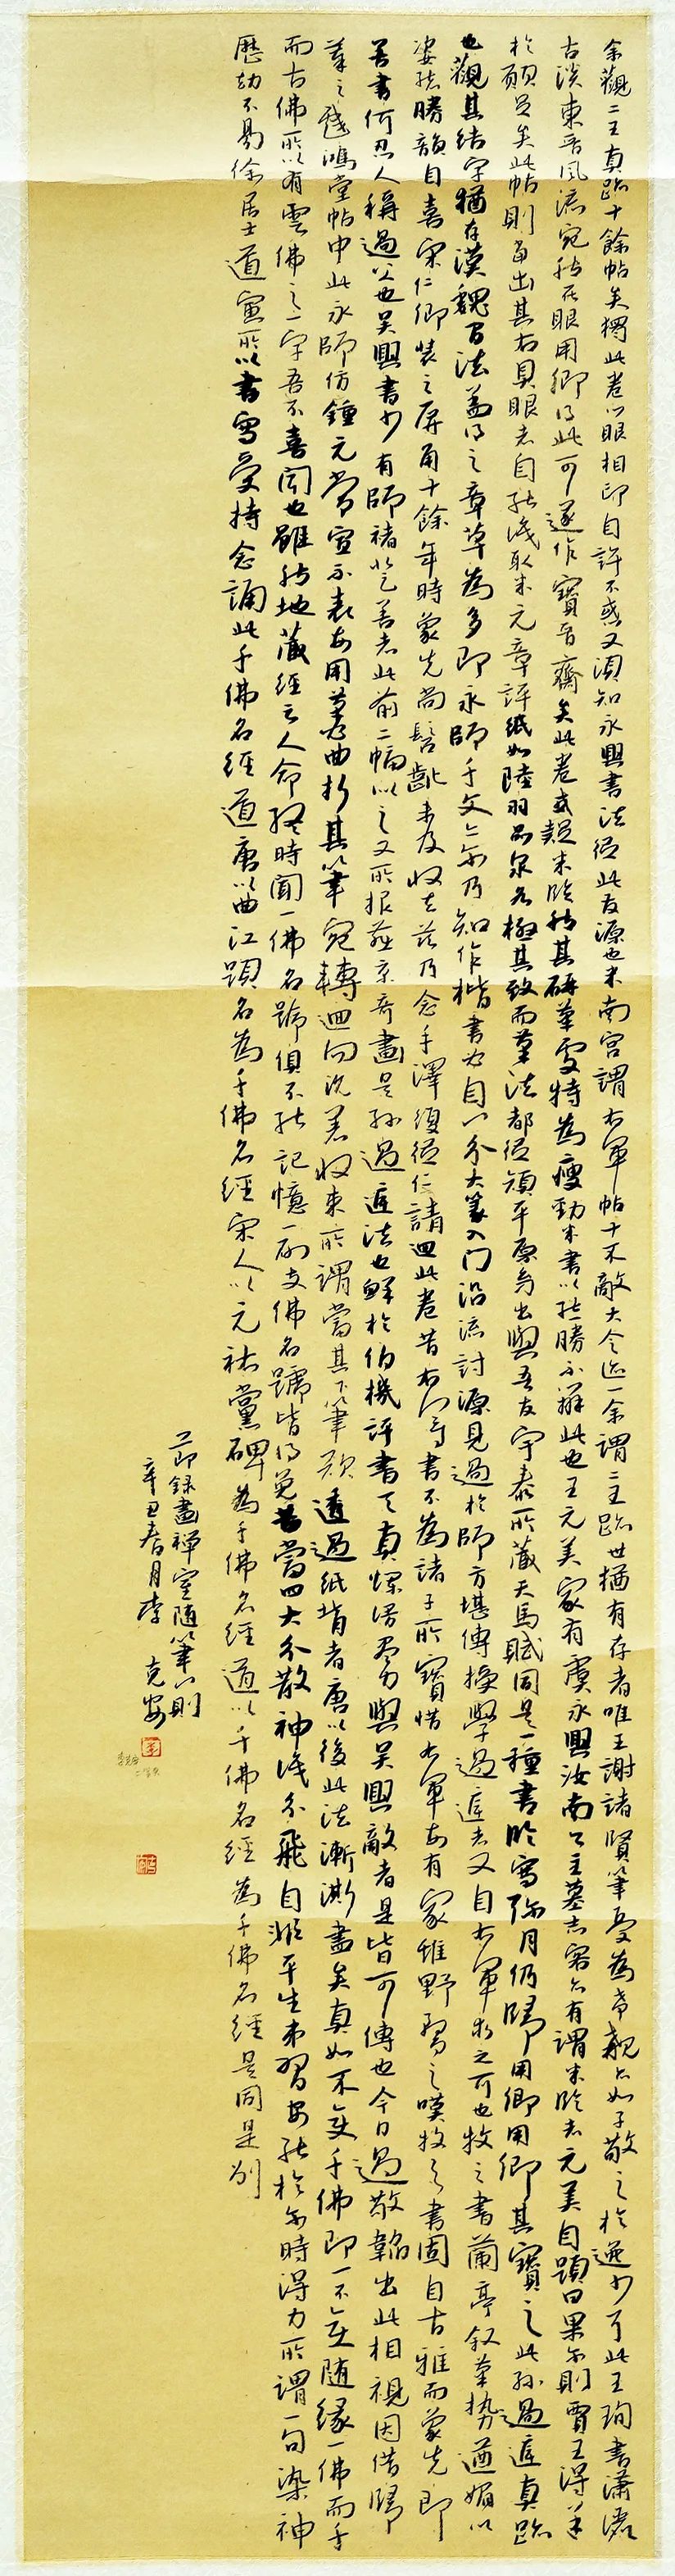 余觀二王真跡十餘帖矣獨此卷心眼相印自許不惑又須知永興書法從此發源也米南宮謂右軍帖十不敵大令跡一余謂二王跡世猶有存者唯王謝諸賢筆尤為希覯亦如子敬之於逸少耳此王珣書瀟灑
古淡東晉風流宛然在眼用卿得此可遂作寶晉齋矣此卷或疑米臨然其破筆處特為瘦勁米書以態勝不辦此也王元美家有虞永興汝南公主墓志亦有謂米臨者元美自題曰果爾則買王得羊
於願足矣此帖則當出其右具眼者自能識取米元章評紙如陸羽品泉各極其致而筆法都從顏平原幻出與吾友宇泰所藏天馬賦同是一種書臨寫彌月仍歸用卿用卿其寶之此孫過庭真跡
也觀其結字猶存漢魏間法蓋得之章草為多即永師千文亦爾乃知作楷書必自八分大篆入門沿流討源見過於師方堪傳授學過庭者又自右軍求之可也牧之書蘭亭叙筆勢遒媚以
姿態勝韻自喜宋仁卿裝之屏角十餘年時蒙先尚髫齔未及收去茲乃念手澤復從仁請迴此卷昔右丞書不為諸子所寶惜右軍安有家雞野鶩之嘆牧之書固自古雅而蒙先即
善書何忍人稱過父也吳興書少有師褚者此前二幅似之又所根蘇京奇畫是孫過庭法也鮮於伯機評書天真爛漫男與吳興敵者是皆可傳也今日過敬韜出此相視因借歸
筆之戲鴻堂帖中此永師仿鍾元常宣示表每用筆必曲折其筆宛轉迴向沉著收束所謂當其下筆欲透過紙背者唐以後此法漸澌盡矣真如不變千佛即一不變隨緣一佛而千
而古佛所以有雲佛之一字吾不喜聞也雖然地藏經云人命終時聞一佛名號俱不能記憶一辟支佛名號皆得免苦當四大分散神識分飛自非平生串習安能於爾時得力所謂一句染神
歷劫不易徐居士道寅所以書寫受持念誦此千佛名經道唐以曲江題名為千佛名經宋人以元祐黨碑為千佛名經道以千佛名經為千佛名經是同是別
節錄畫禪室隨筆八則
辛丑春月李克安